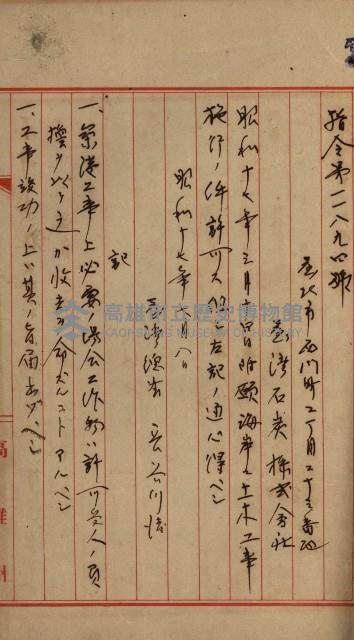 指令第一一八九四號
臺北市西門町二丁目二十三番地
臺灣石炭株式會社
昭和十七年三月十四日附願海岸ニ土木工事
施行ノ件許可ス但シ左記ノ通心得ベシ
昭和十七年 月 八日
臺灣總督 長谷川清
記
一、築港工事上必要ノ場合工作物ハ許可受人ノ負
擔ヲ以テ之ガ收去ヲ命ズルコトアルベシ
一、工事竣功ノ上ハ其ノ旨届出ヅベシ
高雄市立歷史博物館
KAOHSIUNG MUSEUM OF HISTORY
高雄州